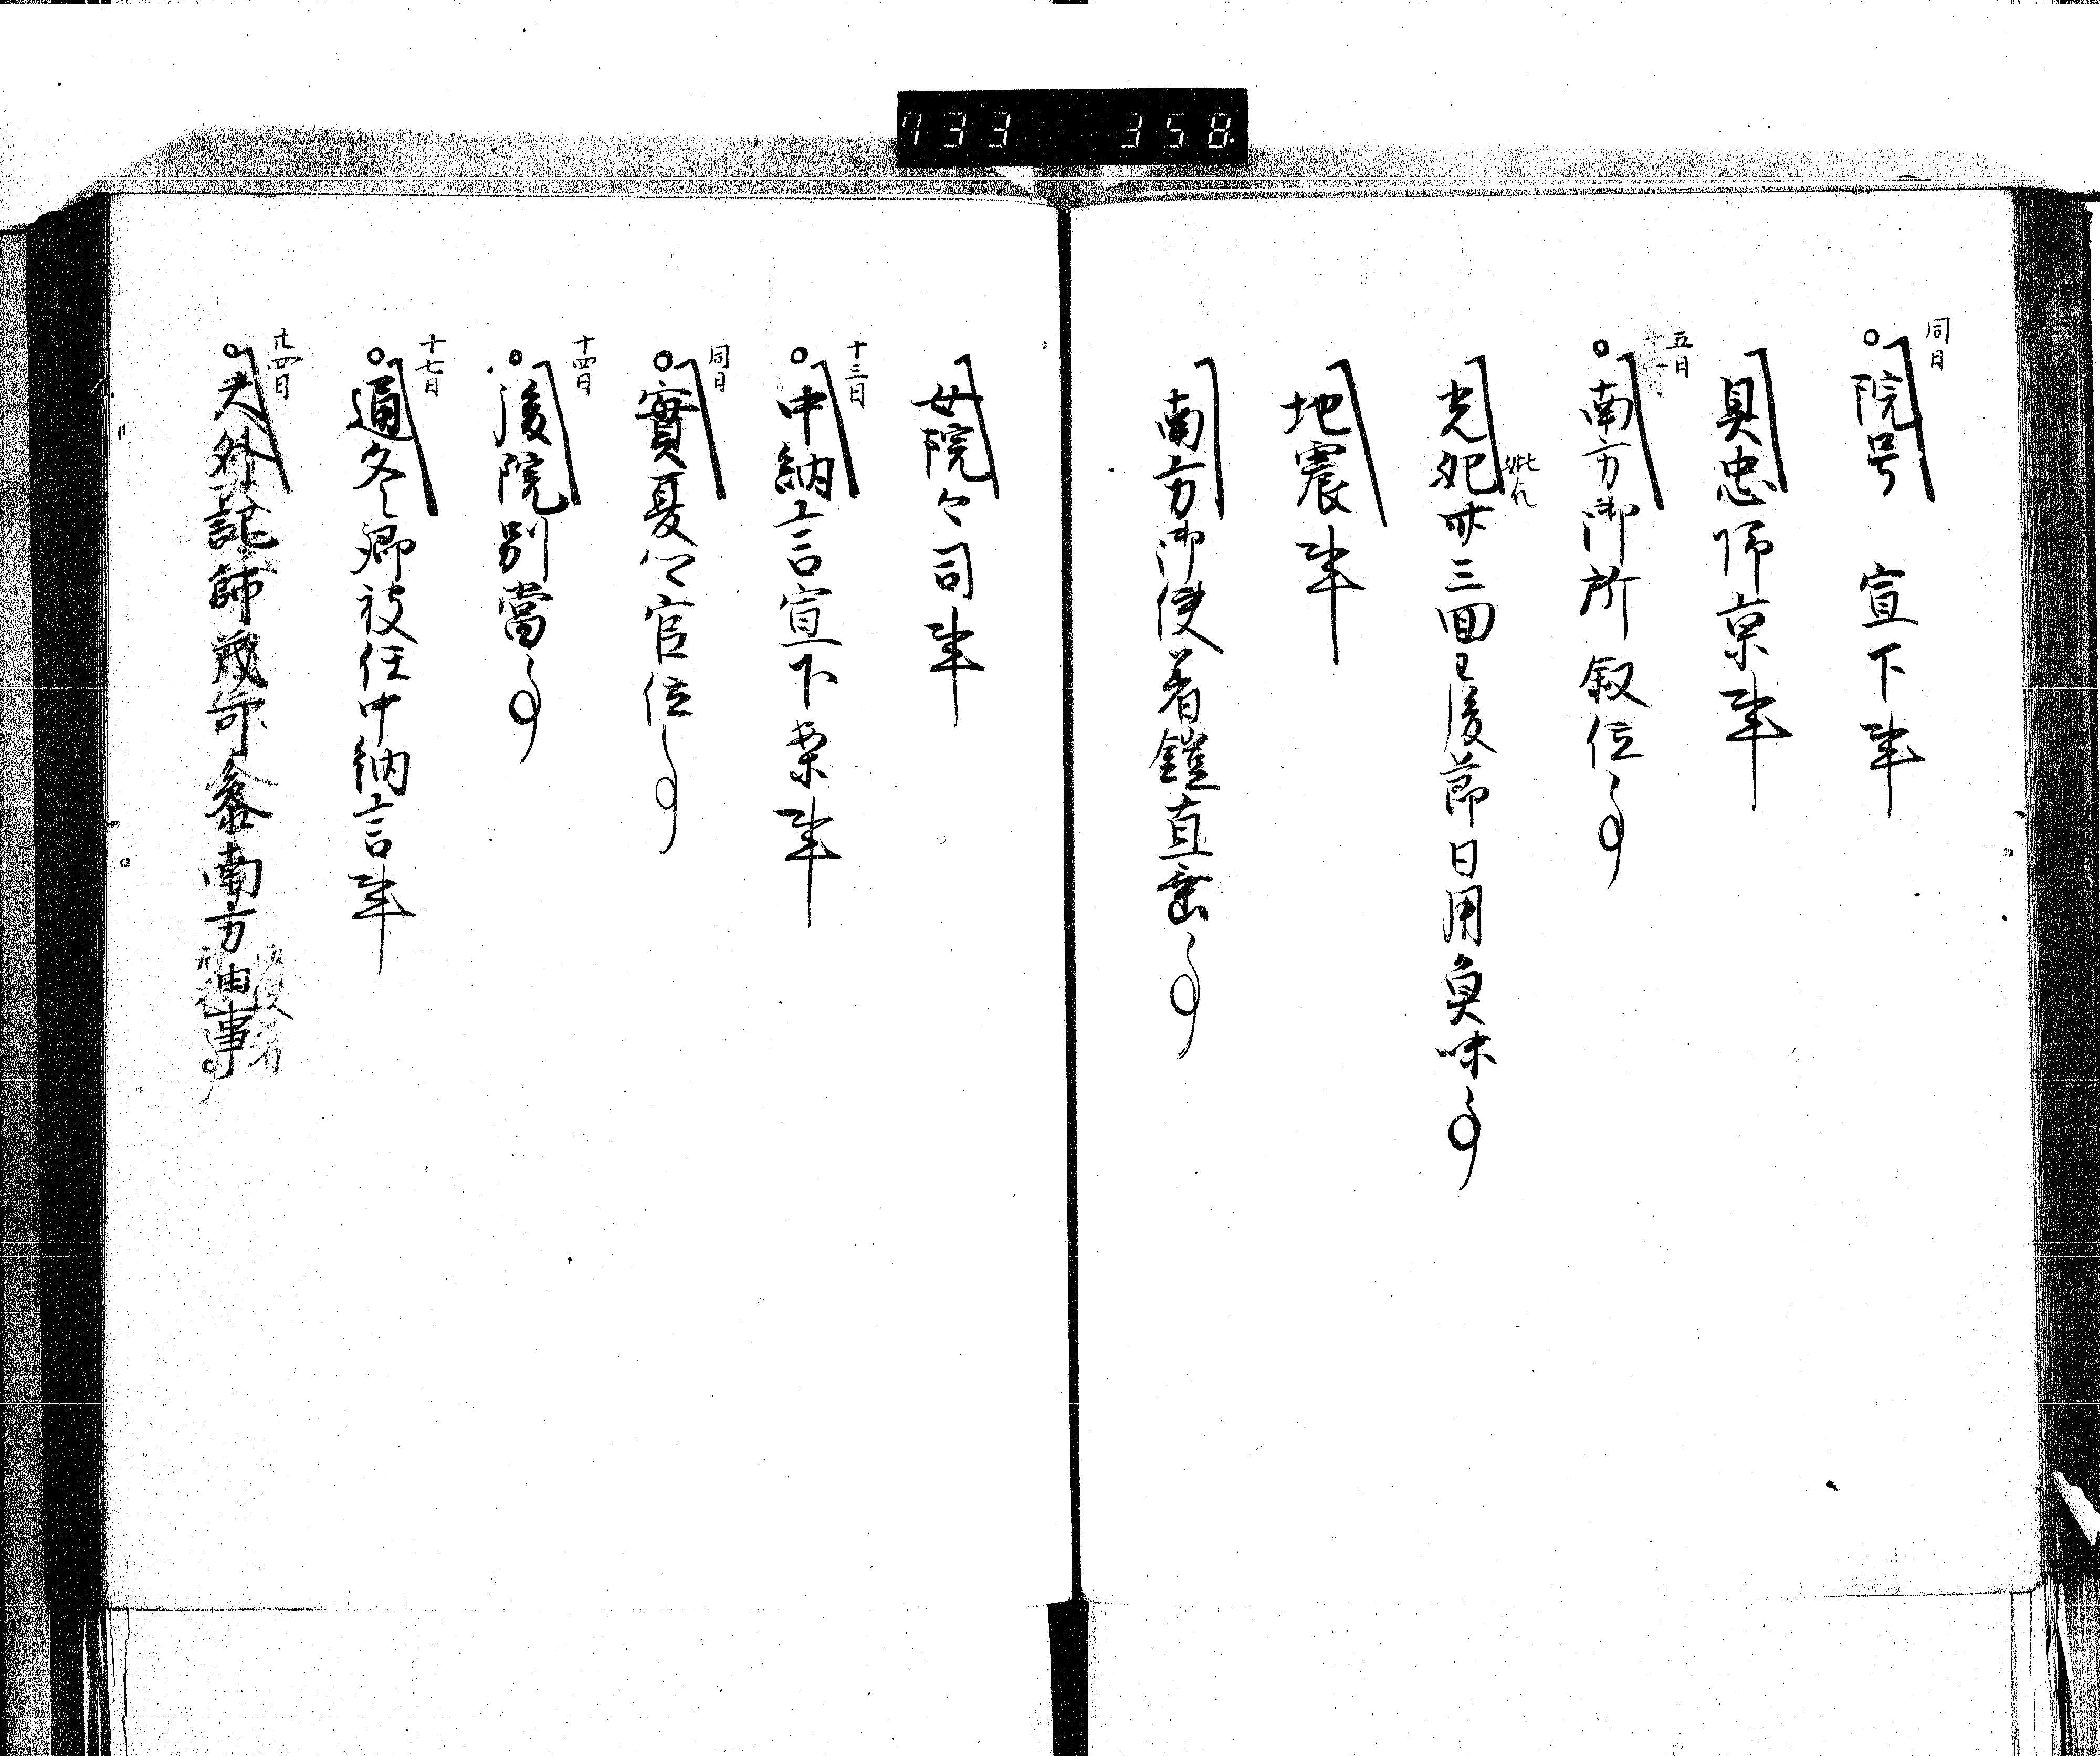 733 358
同日
○院号 宣下事
具忠帰京事
五日
○南方御所叙位〻
先妣亦三回已後節日用魚味〻
妣
地震事
南方御使着鎧直垂〻
女院々司事
十三日
○中納言宣下案事
同日
○實夏公官位〻
十四日
○後院別當〻
十七日
○通冬卿被任中納言事
廿四日
○大外記師茂可参南方由事